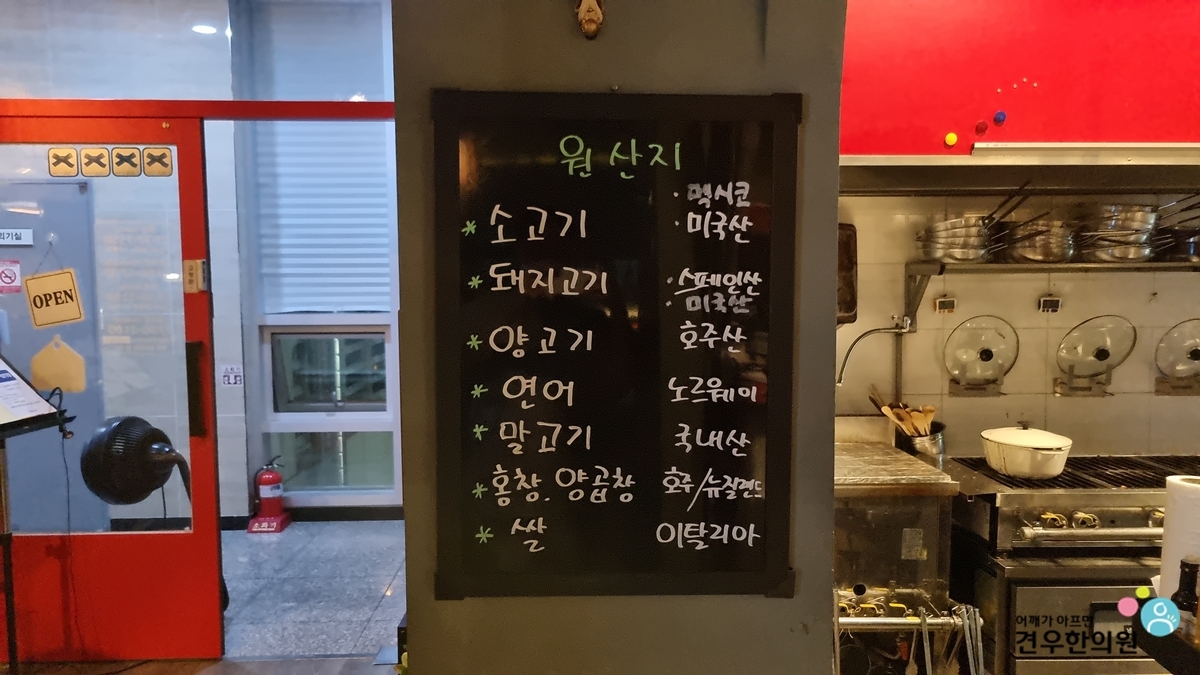 원산지
* 소고기 · 멕시코 · 미국산
* 돼지고기 · 스페인산 · 미국산
* 양고기 호주산
* 연어 노르웨이
* 말고기 국내산
* 홍창. 양곱창 호주/뉴질랜드
* 쌀 이탈리아
OPEN
소화기
어깨가 아프면
견우한의원